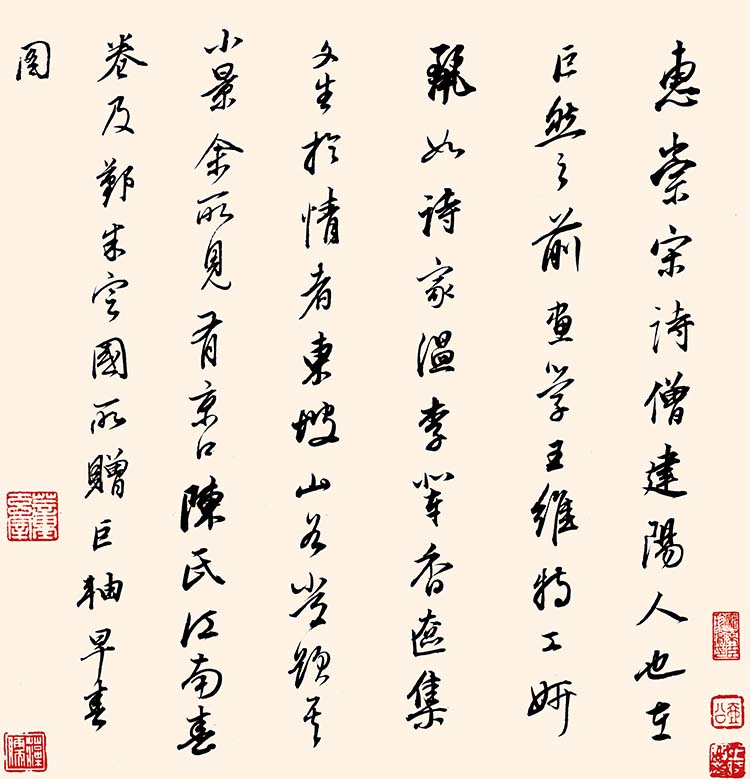 惠崇宋詩僧建陽人也在
巨然之前畫學王維特工妍
麗如詩家温李輩香奩集
文生於情者東坡山谷嘗題其
小景余所見有京口陳氏江南春
卷及鄭朱定國所贈巨軸早春
圖